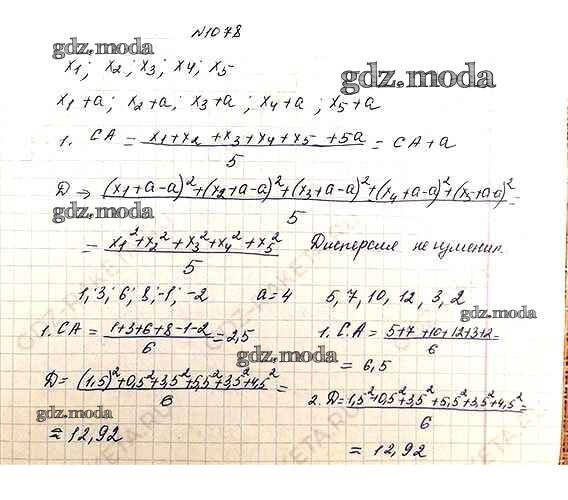 №1078
gdz.moda
x₁; x₂; x₃; x₄; x₅
gdz.moda
x₁+a; x₂+a; x₃+a; x₄+a; x₅+a
1. СА = (x₁+x₂+x₃+x₄+x₅+5a)/5 = СА+a
D → ((x₁+a-a)²+(x₂+a-a)²+(x₃+a-a)²+(x₄+a-a)²+(x₅+a-a)²)/5 =
gdz.moda
= (x₁²+x₂²+x₃²+x₄²+x₅²)/5 Дисперсия не
1; 3; 6; 8; -1; -2 a=4 5, 7, 10, 12, 3, 2
gdz.moda
1. СА = (1+3+6+8-1-2)/6 = 2,5 1. С.А = (5+7+10+12+3+2)/6 =
= 6,5
gdz.moda
D = ((1,5)²+0,5²+3,5²+5,5²+3,5²+4,5²)/6 = 2. D = (1,5²+0,5²+3,5²+5,5²+3,5²+4,5²)/6 =
gdz.moda
≈ 12,92 = 12,92